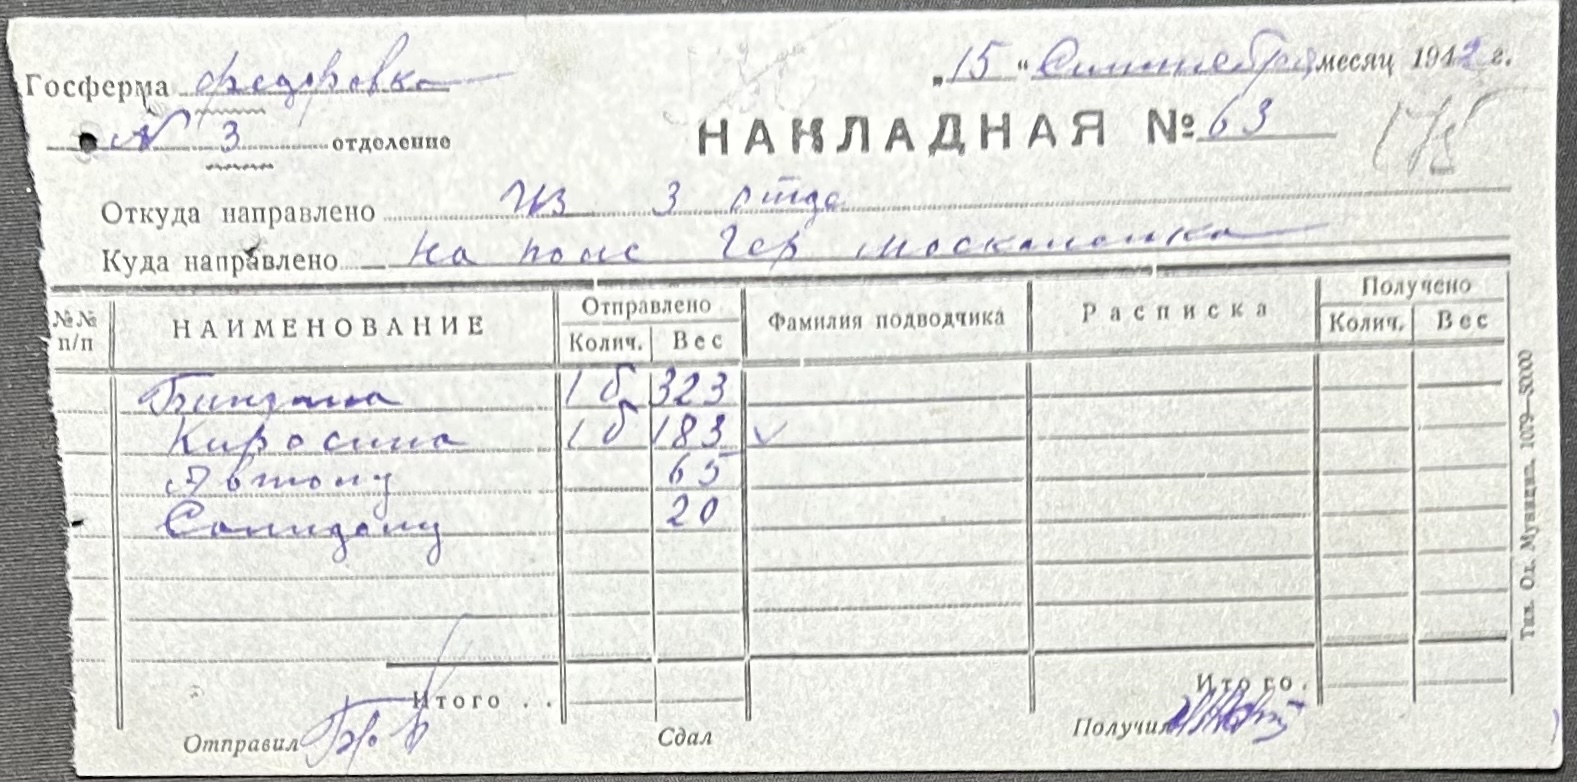 Госферма Федоровка „15“ Синтебря месяц 1942 г.
№ 3 отделение НАКЛАДНАЯ № 63 175
Откуда направлено Из 3 отде
Куда направлено на поле Чер Москаленка
№№ п/п НАИМЕНОВАНИЕ Отправлено Колич. Вес Фамилия подводчика Расписка Получено Колич. Вес
Бинзина 1 б 323
Киросина 1 б 183 ✓
Автолу 65
Солидолу 20
Итого . . Итого .
Отправил Сдал Получил
Тип. Од. Муницип. 1079—50000